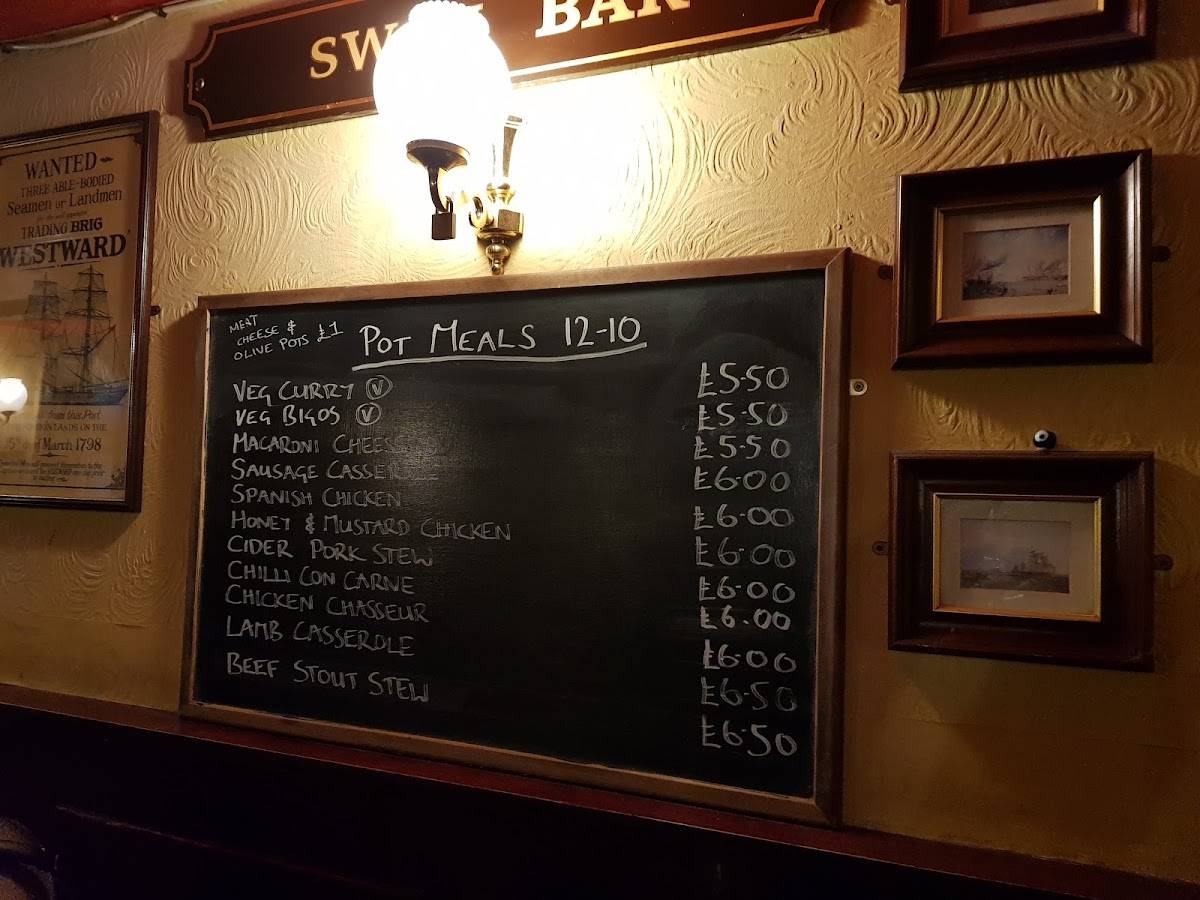 BAR
WANTED
THREE ABLE-BODIED
Seamen or Landmen
TRADING BRIG
WESTWARD
March 1798
MEAT
CHEESE &
OLIVE POTS £1
POT MEALS 12-10
VEG CURRY V £5.50
VEG BIGOS V £5.50
MACARONI CHEESE £5.50
SAUSAGE CASSEROLE £6.00
SPANISH CHICKEN £6.00
HONEY & MUSTARD CHICKEN £6.00
CIDER PORK STEW £6.00
CHILLI CON CARNE £6.00
CHICKEN CHASSEUR £6.00
LAMB CASSEROLE £6.50
BEEF STOUT STEW £6.50